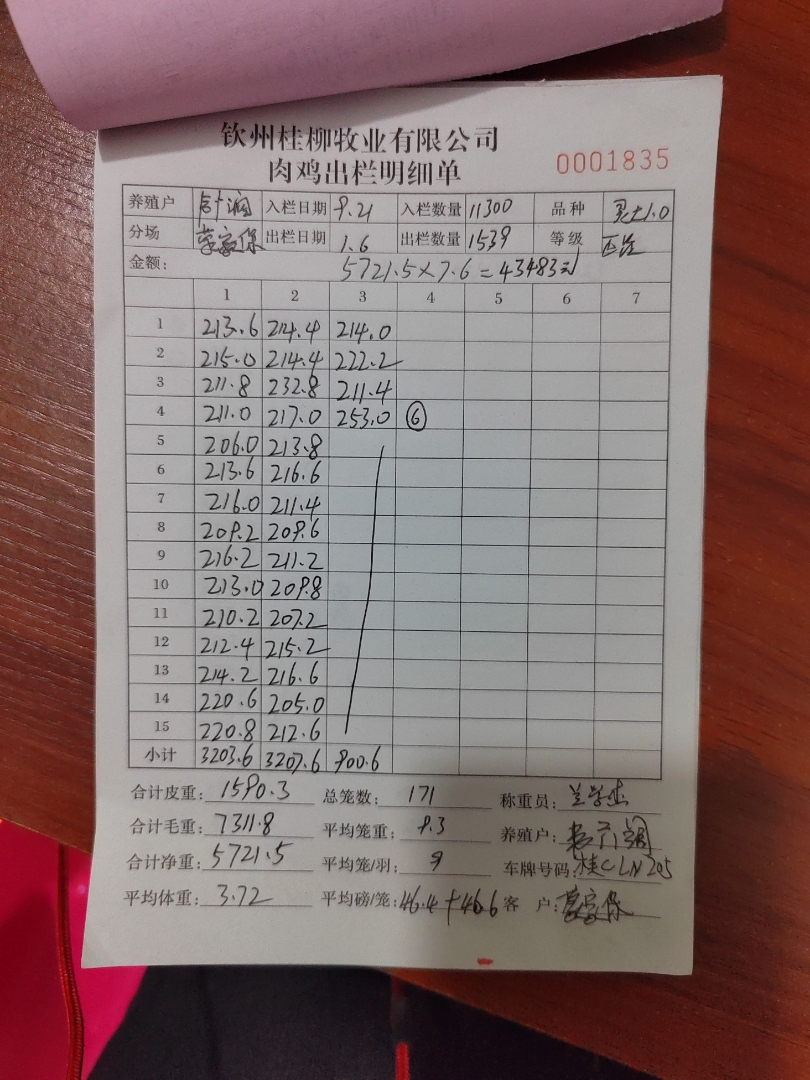 钦州桂柳牧业有限公司
肉鸡出栏明细单 0001835
养殖户 入栏日期 9.21 入栏数量 11300 品种
分场 出栏日期 1.6 出栏数量 1539 等级
金额: 5721.5×7.6=43483元
1 2 3 4 5 6 7
1 213.6 214.4 214.0
2 215.0 214.4 222.2
3 211.8 232.8 211.4
4 211.0 217.0 253.0 ⑥
5 206.0 213.8
6 213.6 216.6
7 216.0 211.4
8 209.2 209.6
9 216.2 211.2
10 213.0 209.8
11 210.2 207.2
12 212.4 215.2
13 214.2 216.6
14 220.6 205.0
15 220.8 212.6
小计 3203.6 3207.6 900.6
合计皮重: 1590.3 总笼数: 171 称重员:
合计毛重: 7311.8 平均笼重: 9.3 养殖户:
合计净重: 5721.5 平均笼/羽: 9 车牌号码: 桂CLN205
平均体重: 3.72 平均磅/笼: 46.4+46.6 客户: